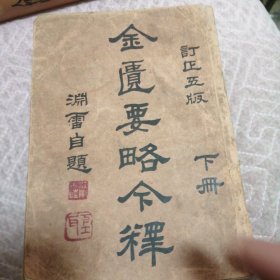 訂正五版
下冊
金匱要略今釋
淵雷自題